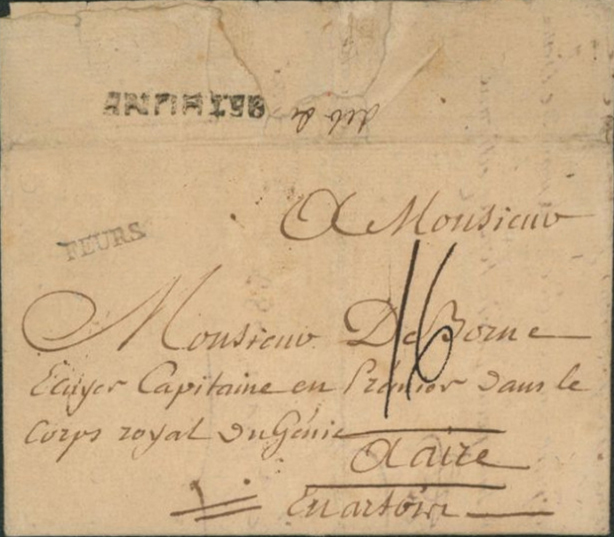 deb de
A Monsieur
FEURS
16
Monsieur De Borne
Ecuyer Capitaine en Premier dans le
Corps royal Du Génie
A aire
En artois